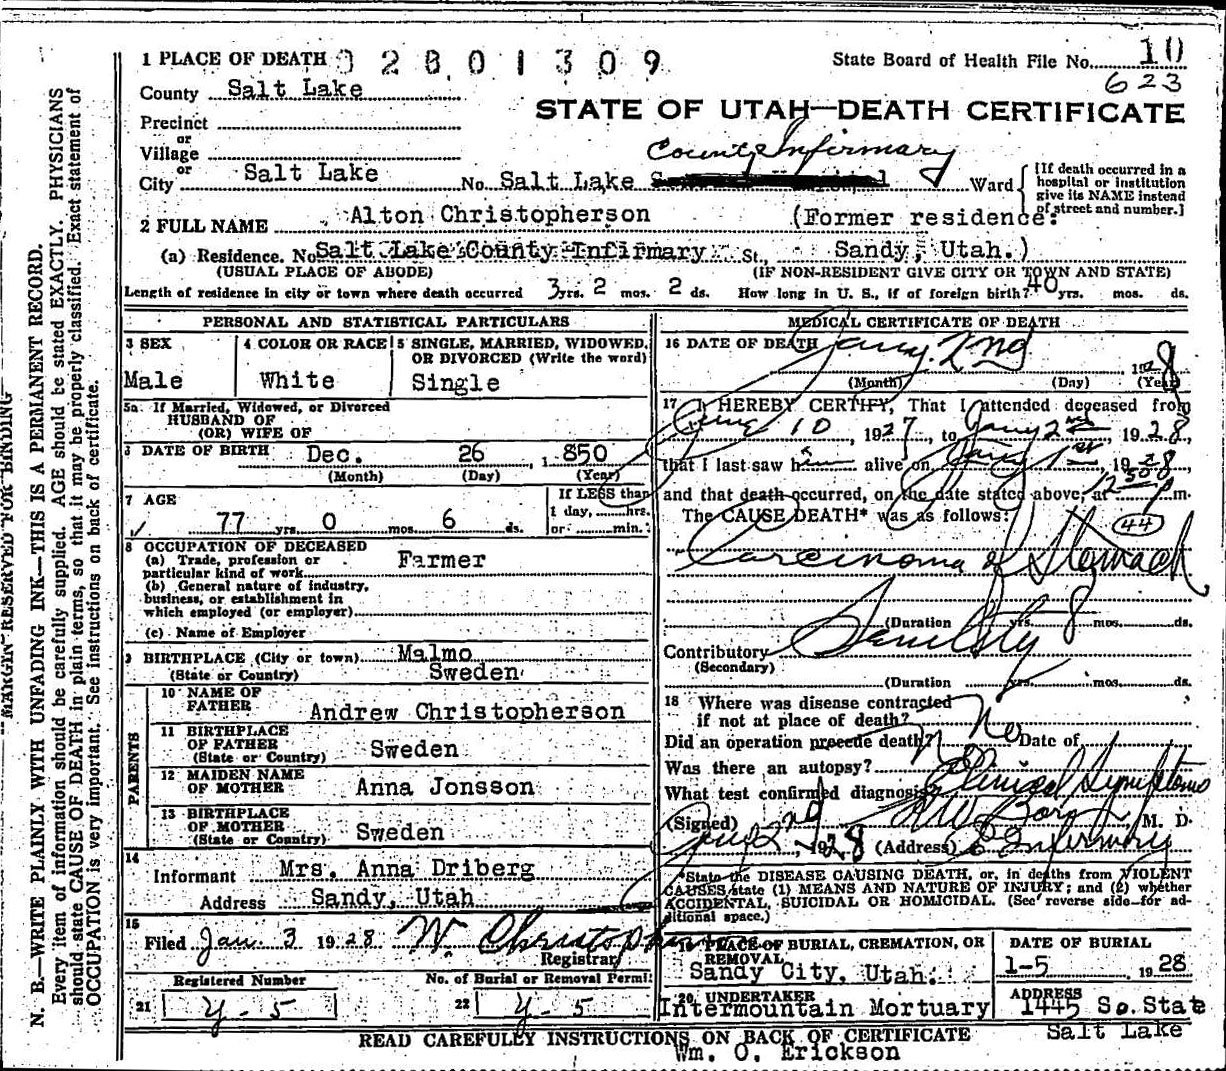 1 PLACE OF DEATH 02801309 State Board of Health File No. 10
623
County Salt Lake
STATE OF UTAH—DEATH CERTIFICATE
Precinct
or
Village
or
County Infirmary
City Salt Lake No. Salt Lake Ward
[If death occurred in a
hospital or institution
give its NAME instead
of street and number.]
2 FULL NAME Alton Christopherson (Former residence:
(a) Residence. No. Salt Lake County Infirmary St., Sandy, Utah.)
(USUAL PLACE OF ABODE) (IF NON-RESIDENT GIVE CITY OR TOWN AND STATE)
Length of residence in city or town where death occurred 3 yrs. 2 mos. 2 ds. How long in U. S., if of foreign birth? 40 yrs. mos. ds.
PERSONAL AND STATISTICAL PARTICULARS
3 SEX 4 COLOR OR RACE 5 SINGLE, MARRIED, WIDOWED,
OR DIVORCED (Write the word)
Male White Single
5a If Married, Widowed, or Divorced
HUSBAND OF
(OR) WIFE OF
6 DATE OF BIRTH Dec. 26, 1850
(Month) (Day) (Year)
7 AGE If LESS than
1 day, hrs.
77 yrs. 0 mos. 6 ds. or min.
8 OCCUPATION OF DECEASED
(a) Trade, profession or
particular kind of work Farmer
(b) General nature of industry,
business, or establishment in
which employed (or employer)
(c) Name of Employer
9 BIRTHPLACE (City or town) Malmo
(State or Country) Sweden
PARENTS
10 NAME OF
FATHER Andrew Christopherson
11 BIRTHPLACE
OF FATHER Sweden
(State or Country)
12 MAIDEN NAME
OF MOTHER Anna Jonsson
13 BIRTHPLACE
OF MOTHER Sweden
(State or Country)
14
Informant Mrs. Anna Driberg
Address Sandy, Utah
15
Filed Jan. 3 1928 W Christopherson
Registrar
Registered Number No. of Burial or Removal Permit
21 Y-5 22 Y-5
MEDICAL CERTIFICATE OF DEATH
16 DATE OF DEATH Jany. 2nd 1928
(Month) (Day) (Year)
17 I HEREBY CERTIFY, That I attended deceased from
10, 1927, to Jany 2nd, 1928,
that I last saw him alive on Jany 1st, 1928,
and that death occurred, on the date stated above, at 12:50 m.
The CAUSE DEATH* was as follows:
44
Carcinoma of Stomach
(Duration yrs. 8 mos. ds.
Contributory Senility
(Secondary)
(Duration yrs. mos. ds.
18 Where was disease contracted
if not at place of death?
Did an operation precede death? No Date of
Was there an autopsy?
What test confirmed diagnosis? Clinical Symptoms
(Signed) M. D.
2nd, 1928 (Address) Infirmary
*State the DISEASE CAUSING DEATH, or, in deaths from VIOLENT
CAUSES state (1) MEANS AND NATURE OF INJURY; and (2) whether
ACCIDENTAL, SUICIDAL OR HOMICIDAL. (See reverse side for ad-
ditional space.)
19 PLACE OF BURIAL, CREMATION, OR
REMOVAL
DATE OF BURIAL
Sandy City, Utah. 1-5 1928
20 UNDERTAKER ADDRESS
Intermountain Mortuary 1445 So. State
Salt Lake
READ CAREFULLY INSTRUCTIONS ON BACK OF CERTIFICATE
Wm. O. Erickson
MARGIN RESERVED FOR BINDING
N. B.—WRITE PLAINLY WITH UNFADING INK—THIS IS A PERMANENT RECORD.
Every item of information should be carefully supplied. AGE should be stated EXACTLY. PHYSICIANS
should state CAUSE OF DEATH in plain terms, so that it may be properly classified. Exact statement of
OCCUPATION is very important. See instructions on back of certificate.